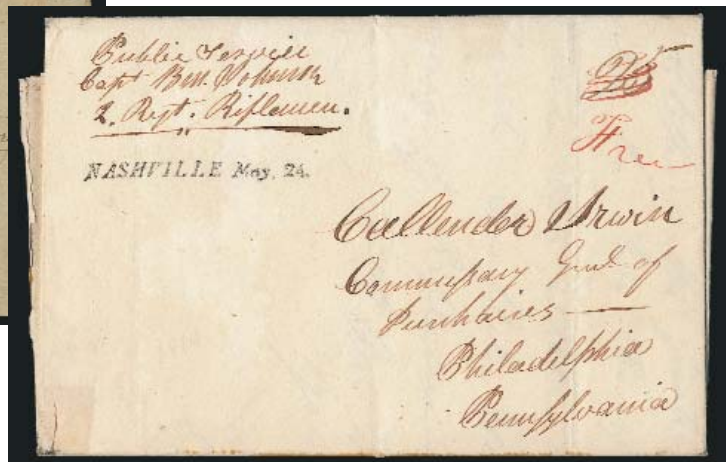 Public Service
Capt Ben. Johnson
2. Regt. Riflemen.
NASHVILLE May. 24.
Free
Callender Irwin
Commissary Genl of
Purchases
Philadelphia
Pennsylvania